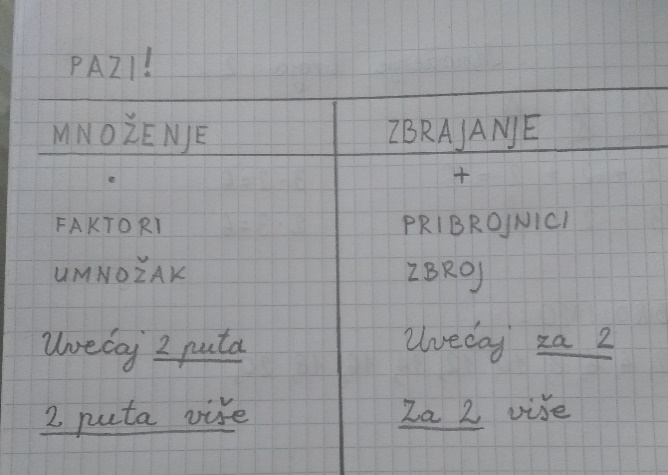 PAZI!
MNOŽENJE ZBRAJANJE
· +
FAKTORI PRIBROJNICI
UMNOŽAK ZBROJ
Uvećaj 2 puta Uvećaj za 2
2 puta više Za 2 više